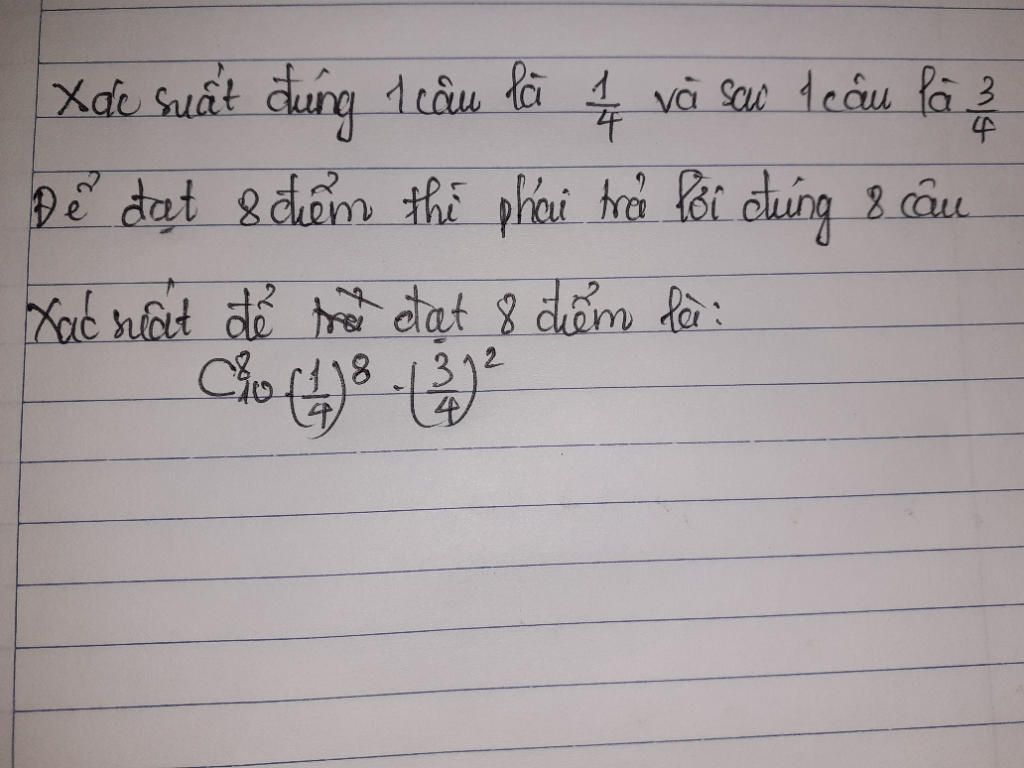 Xác suất đúng 1 câu là 1/4 và sai 1 câu là 3/4
Để đạt 8 điểm thì phải trả lời đúng 8 câu
Xác suất để đạt 8 điểm là:
C⁸₁₀ · (1/4)⁸ · (3/4)²